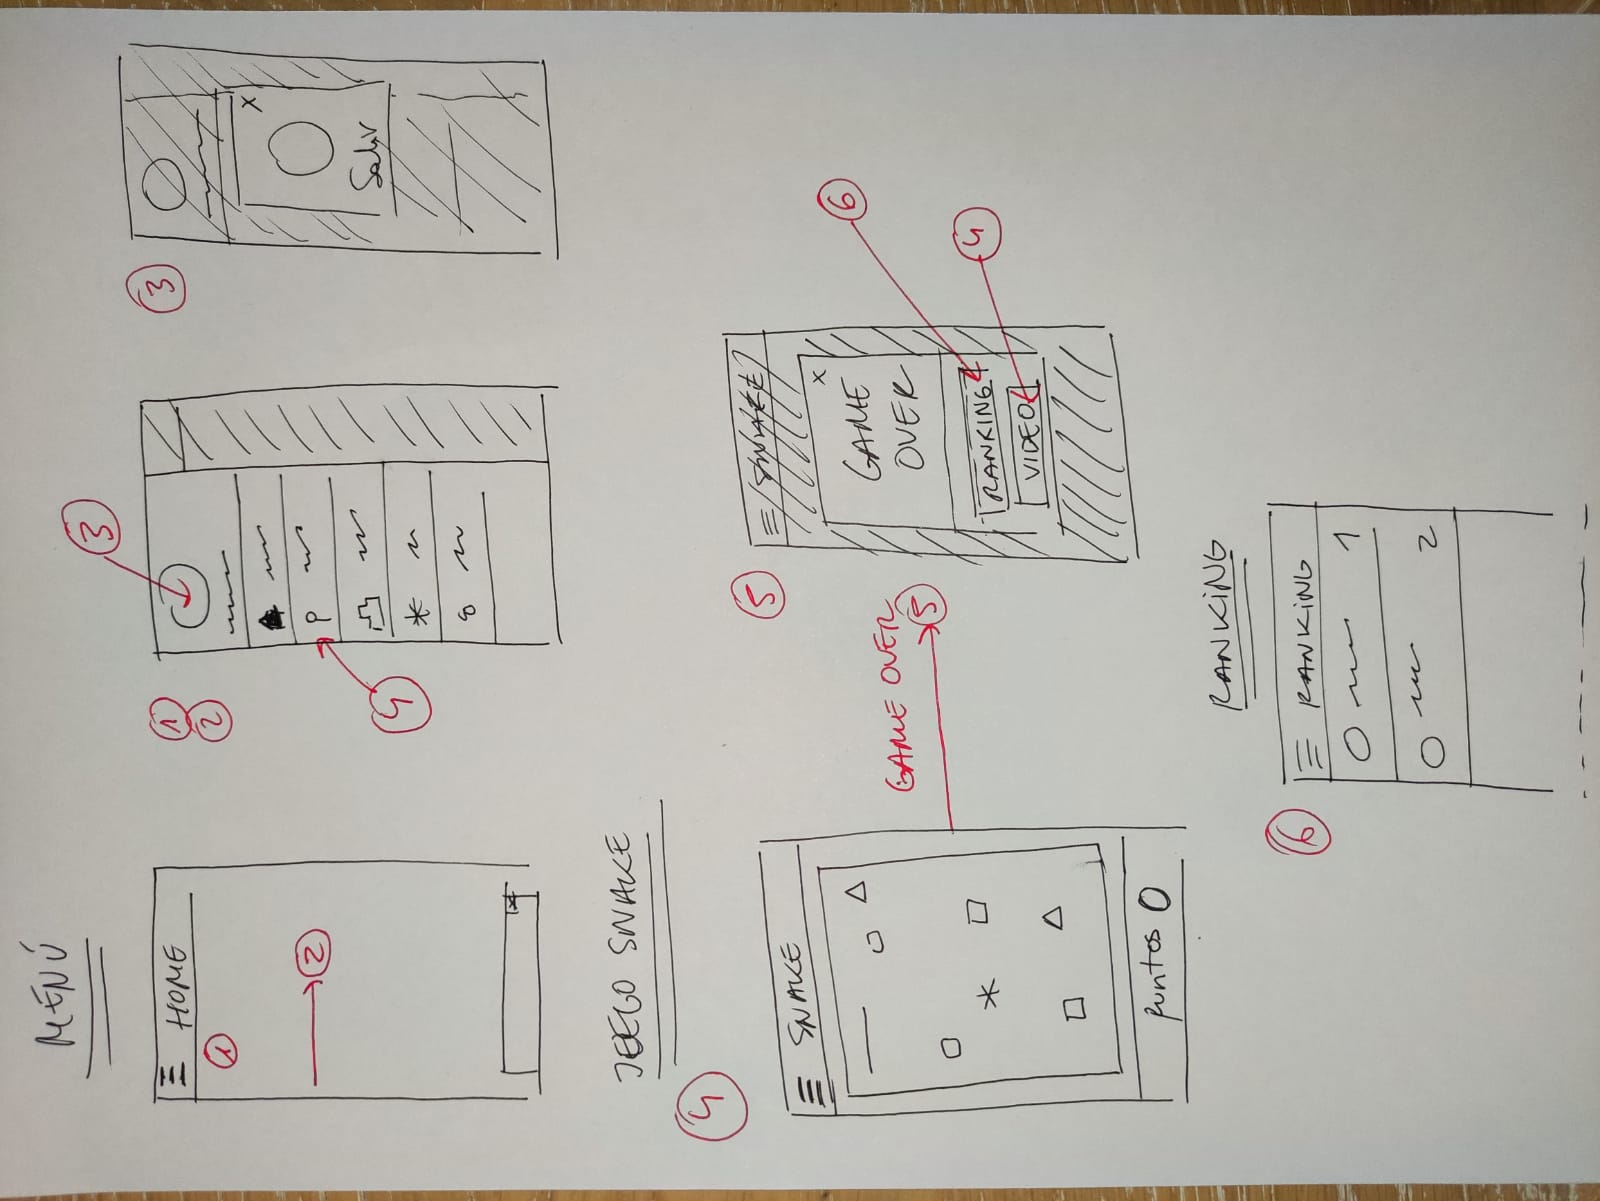 MENÚ
3
HOME
1
2
1
2
4
3
x
Salir
x
JUEGO SNAKE
4
SNAKE
GAME OVER
5
Puntos 0
5
SNAKE
x
GAME
OVER
6
RANKING
VIDEO
4
RANKING
6
RANKING
1
2